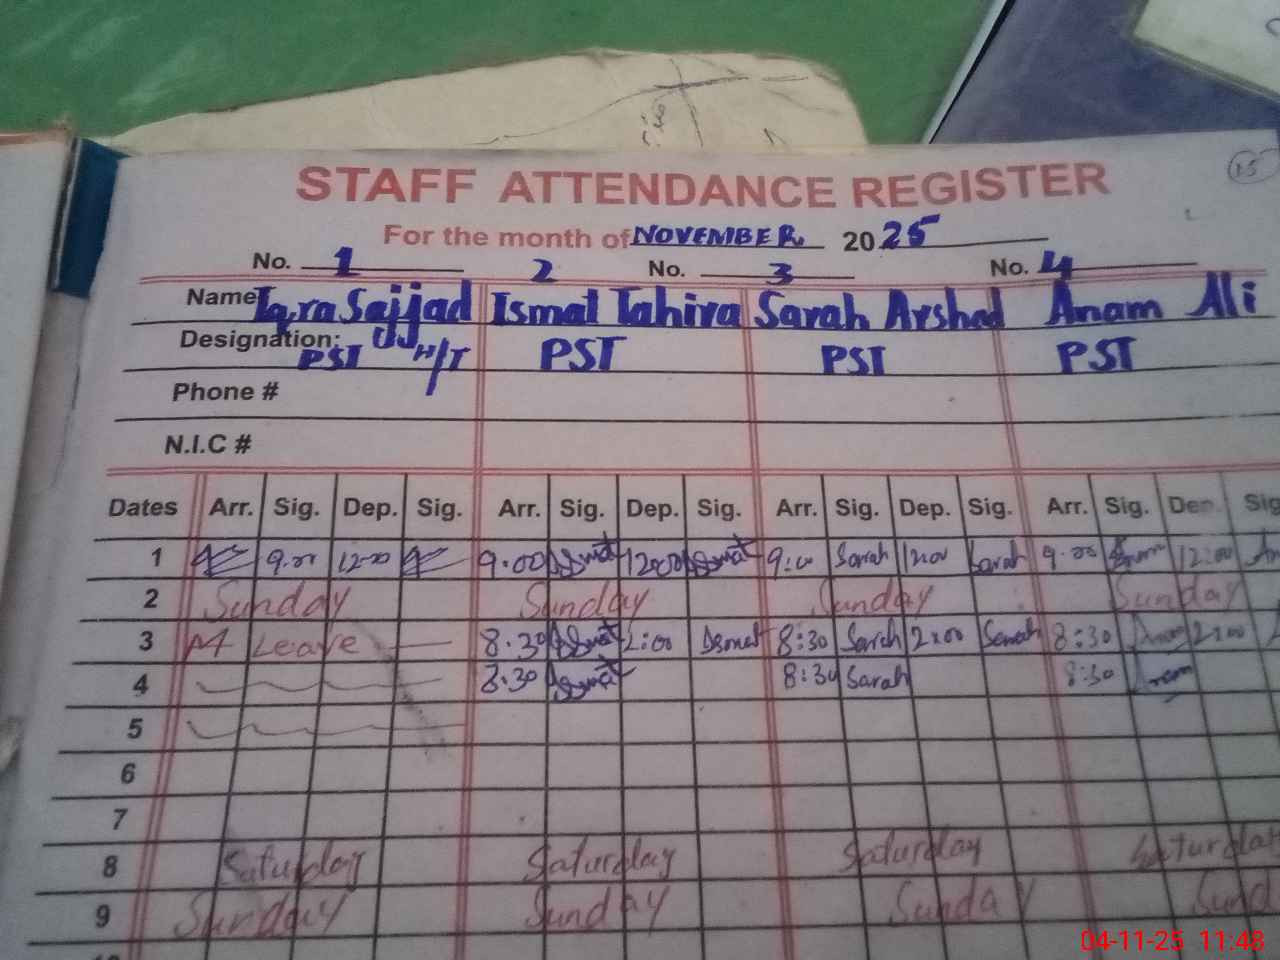 15
STAFF ATTENDANCE REGISTER
For the month of NOVEMBER 2025
No. 1 2 No. 3 No. 4
Name Iqra Sajjad Ismat Tahira Sarah Arshad Anam Ali
Designation: PST H/T PST PST PST
Phone #
N.I.C #
Dates Arr. Sig. Dep. Sig. Arr. Sig. Dep. Sig. Arr. Sig. Dep. Sig. Arr. Sig. Dep. Sig
1 9.00 12.00 9.00 Ismat 12.00 Ismat 9:00 Sarah 12:00 Sarah 9.00 Anam 12:00
2 Sunday Sunday Sunday Sunday
3 M Leave 8.30 Ismat 2:00 Ismat 8:30 Sarah 2:00 Sarah 8:30 Anam 2:00
4 8:30 Ismat 8:30 Sarah 8:30 Anam
5
6
7
8 Saturday Saturday Saturday Saturday
9 Sunday Sunday Sunday Sund
04-11-25 11:48